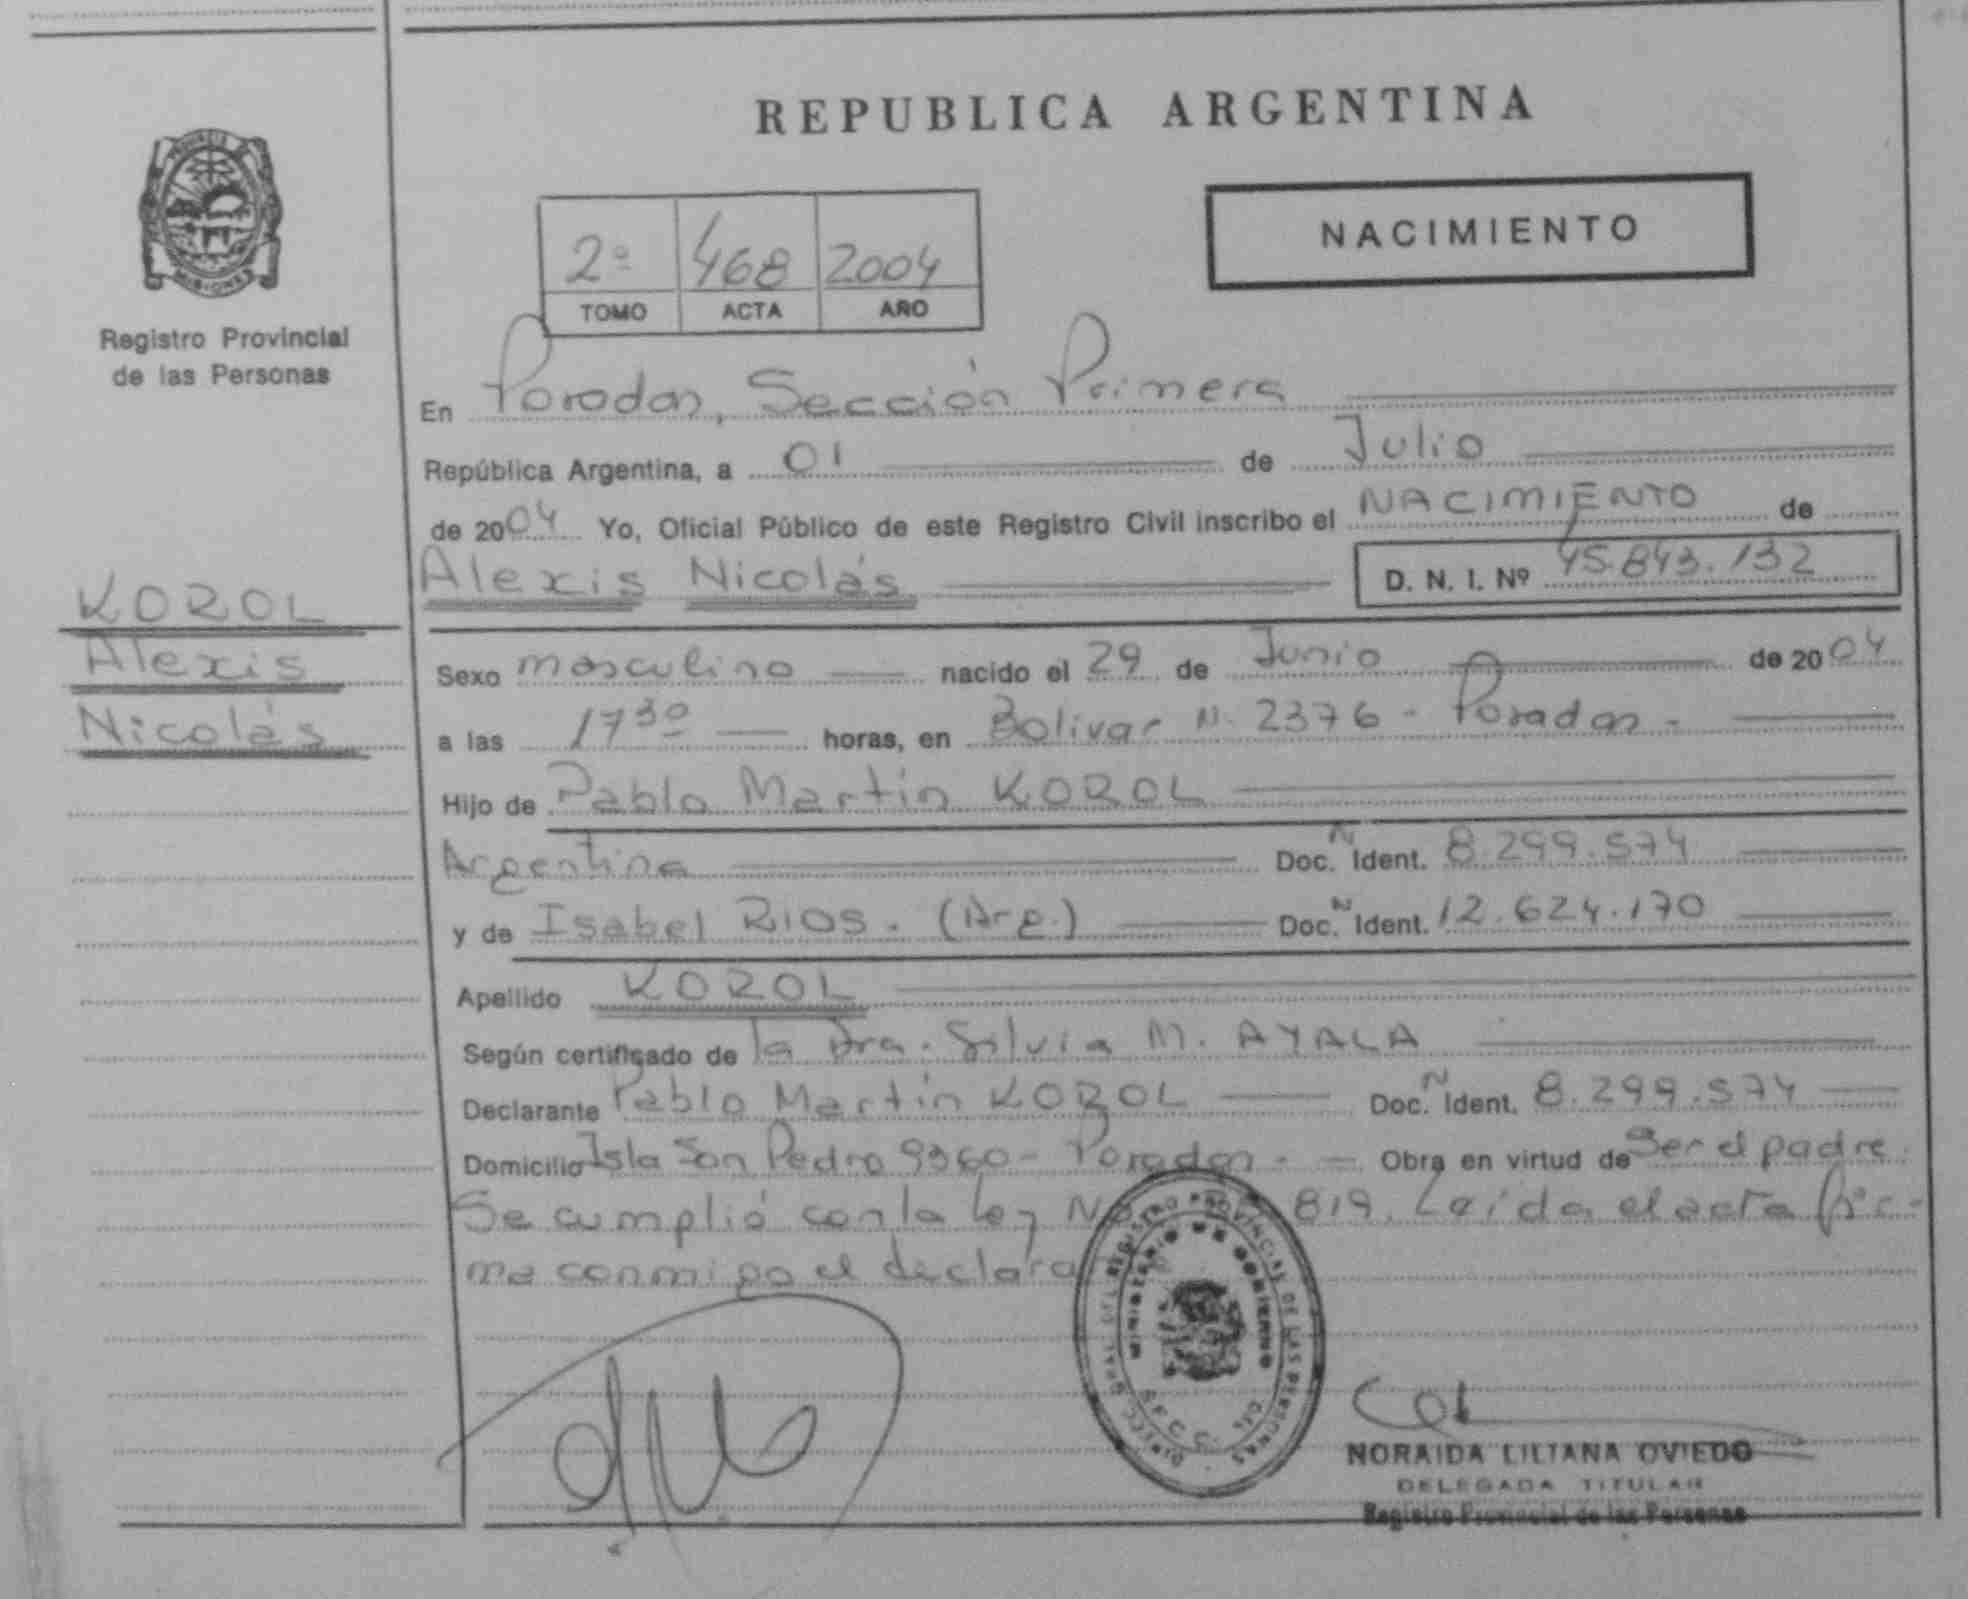 REPUBLICA ARGENTINA
NACIMIENTO
2º 468 2004
TOMO ACTA AÑO
PROVINCIA DE MISIONES
Registro Provincial
de las Personas
En Posadas, Sección Primera
República Argentina, a 01 de Julio
de 2004 Yo, Oficial Público de este Registro Civil inscribo el NACIMIENTO de
Alexis Nicolás D. N. I. Nº 45.843.132
KOROL
Alexis
Nicolás
Sexo masculino nacido el 29 de Junio de 2004
a las 17 30 horas, en Bolivar N. 2376 - Posadas -
Hijo de Pablo Martín KOROL
Argentina Doc. N Ident. 8.299.574
y de Isabel RIOS. (Arg.) Doc. N Ident. 12.624.170
Apellido KOROL
Según certificado de la Dra. Silvia M. AYALA
Declarante Pablo Martín KOROL Doc. N Ident. 8.299.574
Domicilio Isla San Pedro 9360 - Posadas - Obra en virtud de Ser el padre.
Se cumplió con la ley Nº 819. Leída el acta fir-
ma conmigo el declara
DIRECC. GRAL. DEL REGISTRO PROVINCIAL DE LAS PERSONAS
MINISTERIO DE GOBIERNO
NORAIDA LILIANA OVIEDO
DELEGADA TITULAR
Registro Provincial de las Personas